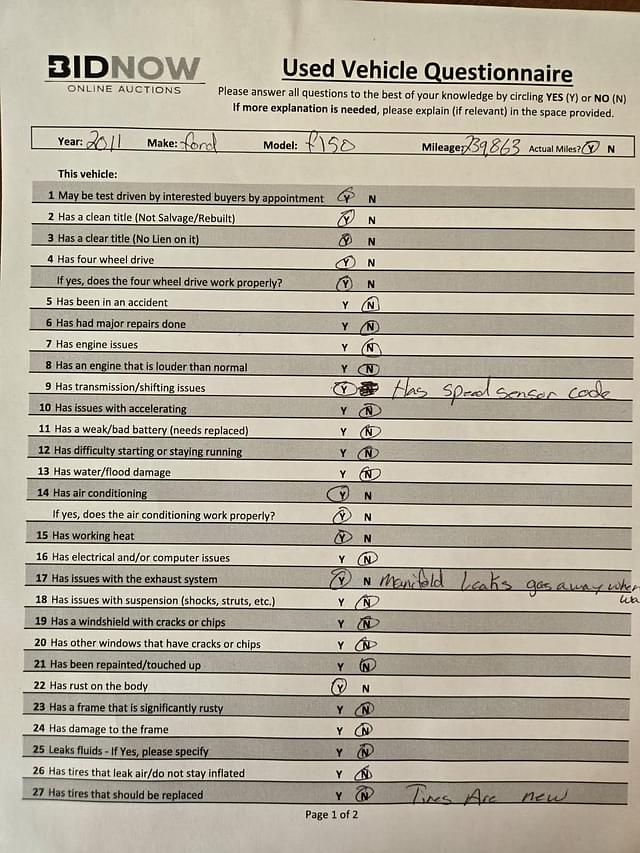 BIDNOW
ONLINE AUCTIONS
Used Vehicle Questionnaire
Please answer all questions to the best of your knowledge by circling YES (Y) or NO (N)
If more explanation is needed, please explain (if relevant) in the space provided.
Year: 2011 Make: ford Model: f150 Mileage: 239863 Actual Miles? Y N
This vehicle:
1 May be test driven by interested buyers by appointment Y N
2 Has a clean title (Not Salvage/Rebuilt) Y N
3 Has a clear title (No Lien on it) Y N
4 Has four wheel drive Y N
If yes, does the four wheel drive work properly? Y N
5 Has been in an accident Y N
6 Has had major repairs done Y N
7 Has engine issues Y N
8 Has an engine that is louder than normal Y N
9 Has transmission/shifting issues Y N Has speed sensor code
10 Has issues with accelerating Y N
11 Has a weak/bad battery (needs replaced) Y N
12 Has difficulty starting or staying running Y N
13 Has water/flood damage Y N
14 Has air conditioning Y N
If yes, does the air conditioning work properly? Y N
15 Has working heat Y N
16 Has electrical and/or computer issues Y N
17 Has issues with the exhaust system Y N Manifold Leaks gas away when
wa
18 Has issues with suspension (shocks, struts, etc.) Y N
19 Has a windshield with cracks or chips Y N
20 Has other windows that have cracks or chips Y N
21 Has been repainted/touched up Y N
22 Has rust on the body Y N
23 Has a frame that is significantly rusty Y N
24 Has damage to the frame Y N
25 Leaks fluids - If Yes, please specify Y N
26 Has tires that leak air/do not stay inflated Y N
27 Has tires that should be replaced Y N Tires Are new
Page 1 of 2